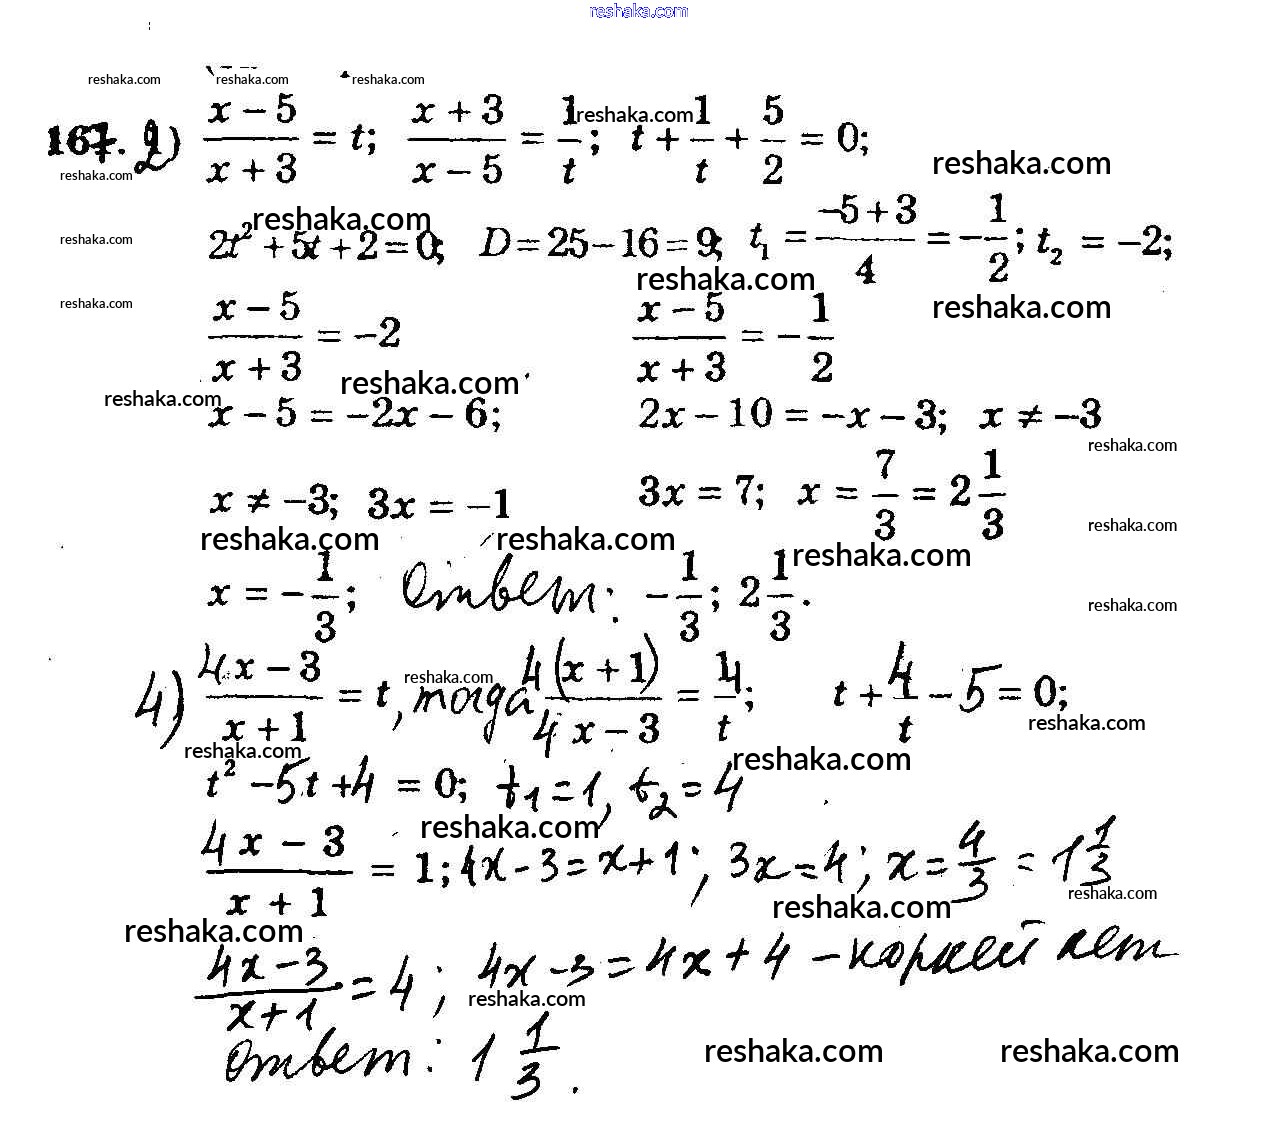 reshaka.com
reshaka.com reshaka.com reshaka.com
167. 2) (x − 5)/(x + 3) = t; (x + 3)/(x − 5) = 1/t; t + 1/t + 5/2 = 0;
reshaka.com reshaka.com reshaka.com
2t² + 5t + 2 = 0; D = 25 − 16 = 9; t₁ = (−5 + 3)/4 = −1/2; t₂ = −2;
reshaka.com reshaka.com reshaka.com
reshaka.com reshaka.com
(x − 5)/(x + 3) = −2 (x − 5)/(x + 3) = −1/2
reshaka.com reshaka.com
x − 5 = −2x − 6; 2x − 10 = −x − 3; x ≠ −3
reshaka.com
x ≠ −3; 3x = −1 3x = 7; x = 7/3 = 2 1/3
reshaka.com reshaka.com reshaka.com reshaka.com
x = −1/3; Ответ: −1/3; 2 1/3.
reshaka.com
4) (4x − 3)/(x + 1) = t, тогда 4(x + 1)/(4x − 3) = 4/t; t + 4/t − 5 = 0;
reshaka.com reshaka.com reshaka.com reshaka.com
t² − 5t + 4 = 0; t₁ = 1, t₂ = 4
reshaka.com
(4x − 3)/(x + 1) = 1; 4x − 3 = x + 1; 3x = 4; x = 4/3 = 1 1/3
reshaka.com reshaka.com reshaka.com
(4x − 3)/(x + 1) = 4; 4x − 3 = 4x + 4 − корней нет
reshaka.com
Ответ: 1 1/3.
reshaka.com reshaka.com